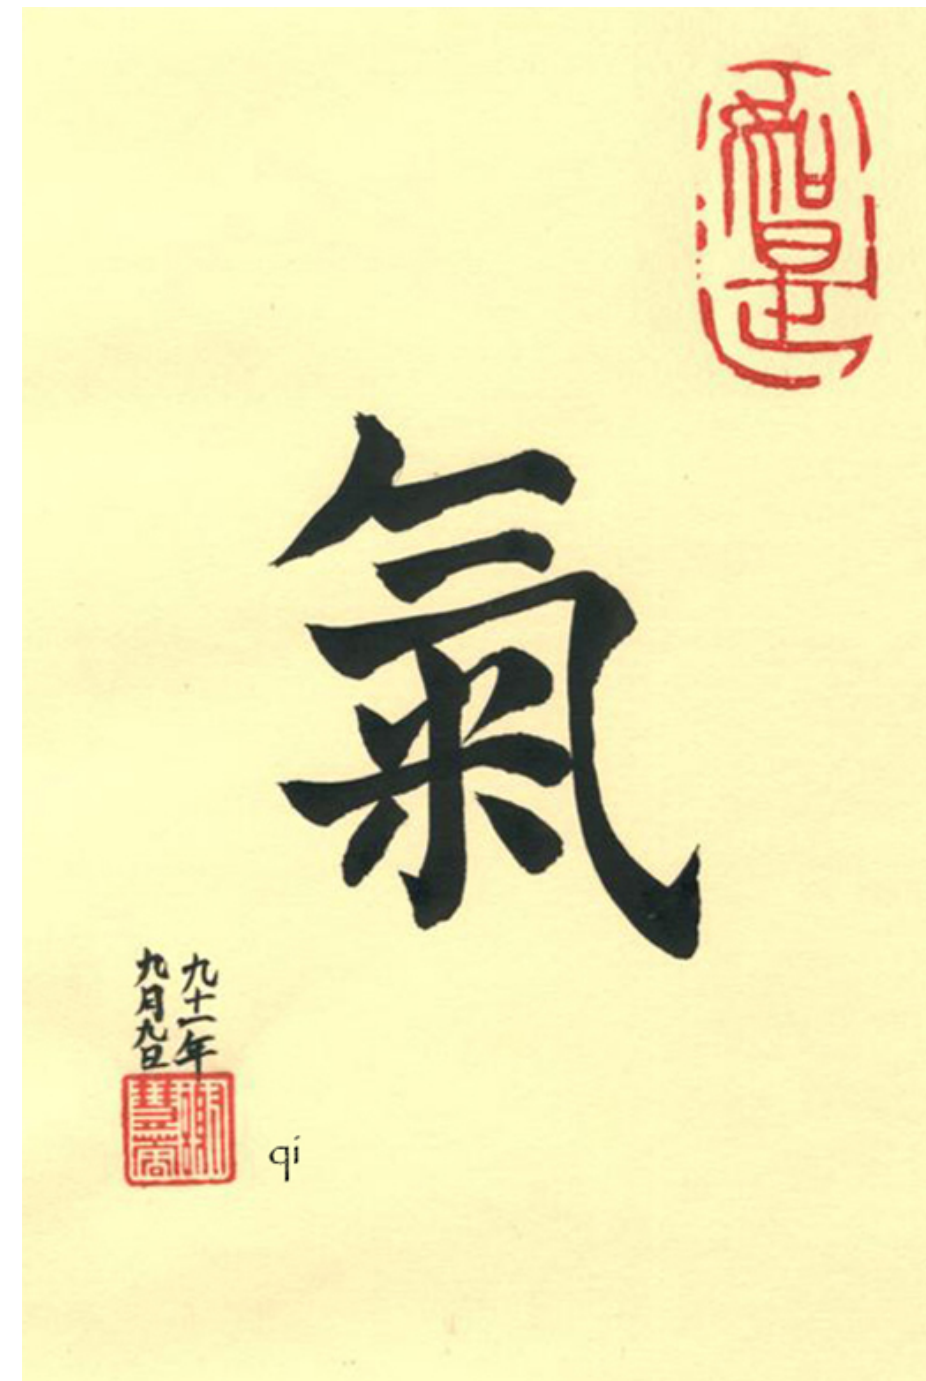 如是
氣
九十一年
九月九日
qi